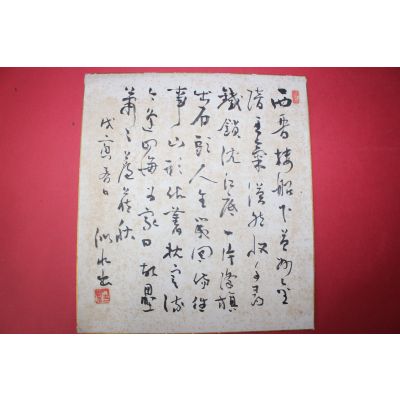 西晉樓船下益州金
陵王氣漠然收千尋
鐵鎖沈江底一片降旗
出石頭人世幾回傷往
事山形依舊枕寒流
今逢四海為家日故壘
蕭々蘆荻秋
戊寅春日
似水書